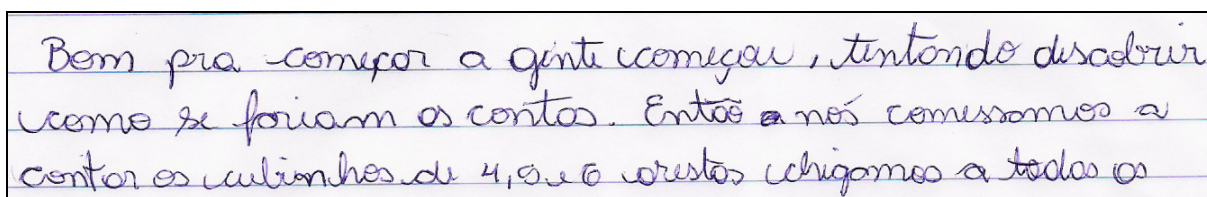 Bom pra começar a gente começou, tentando discobrir
como se fariam as contas. Então nós comessamos a
contar os cubinhos de 4, 5 e 6 arestas chegamos a todas as